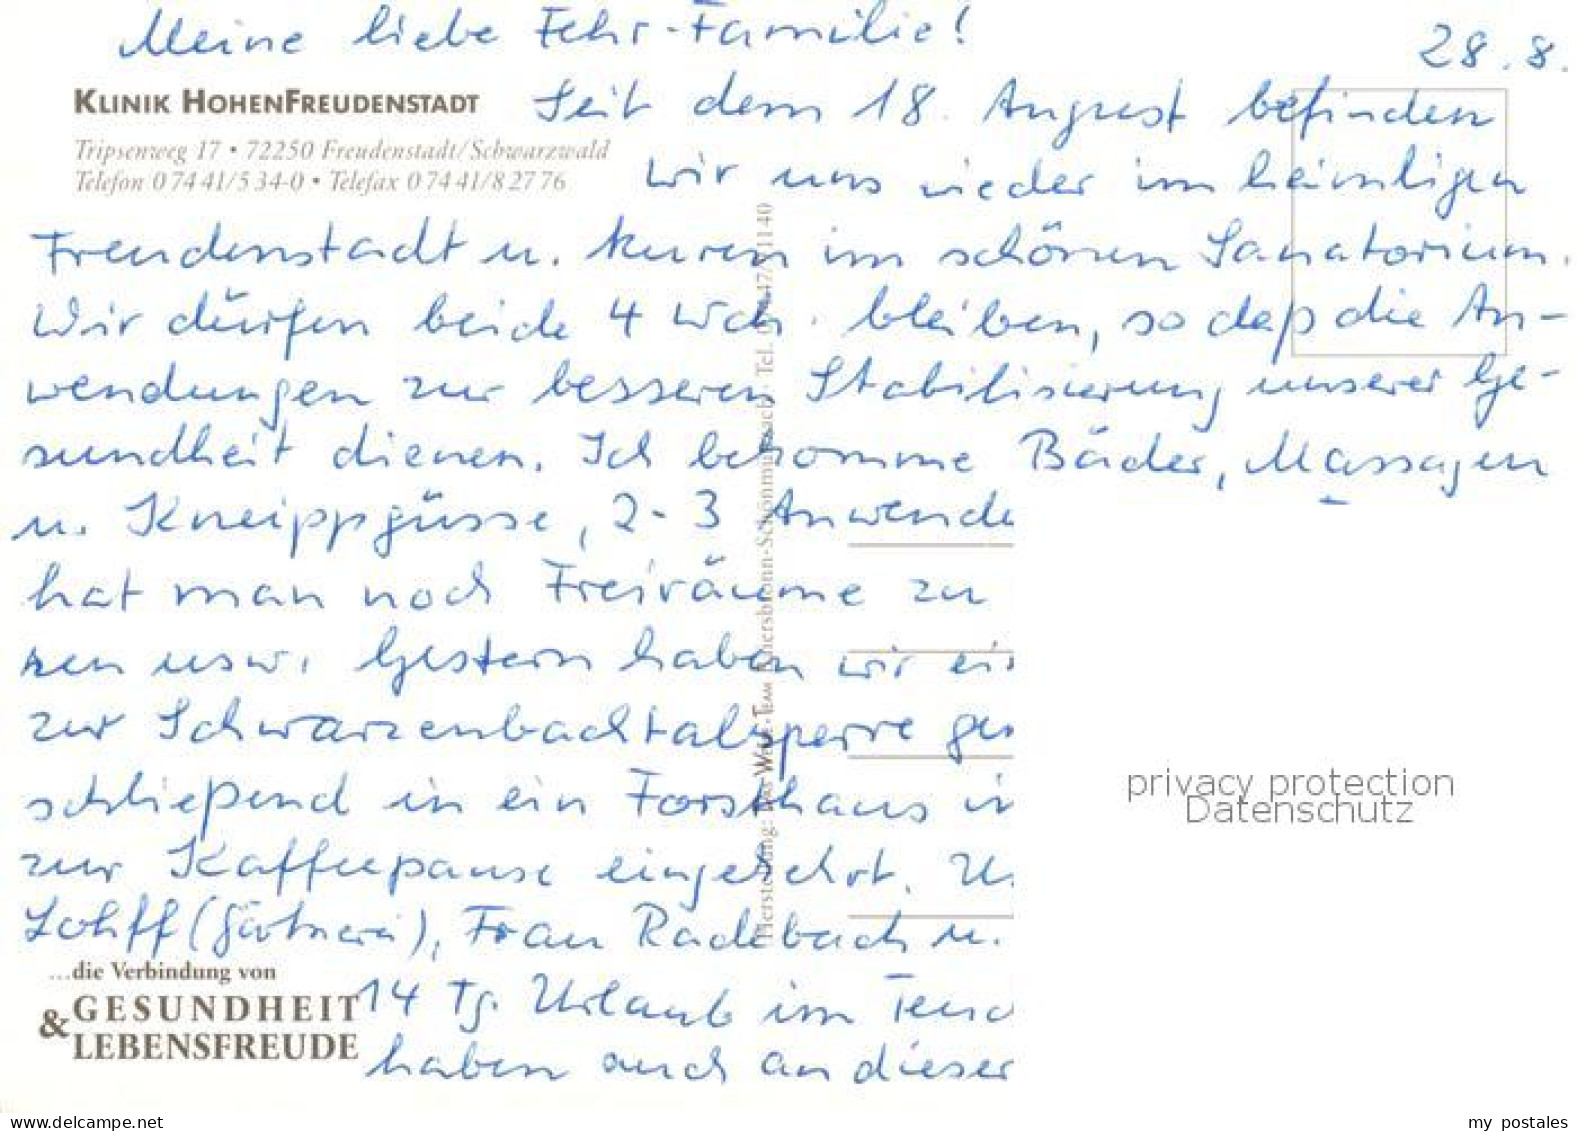 Meine liebe Fehr-Familie!
28.8.
KLINIK HOHENFREUDENSTADT
Tripsenweg 17 • 72250 Freudenstadt/Schwarzwald
Telefon 0 74 41/5 34-0 • Telefax 0 74 41/8 27 76
Seit dem 18. August befinden
wir uns wieder im heimligen
Freudenstadt u. kuren im schönen Sanatorium.
Wir dürfen beide 4 Wch. bleiben, so daß die An-
wendungen zur besseren Stabilisierung unserer Ge-
sundheit dienen. Ich bekomme Bäder, Massagen
u. Kneippgüsse, 2-3 Anwendu
hat man noch Freiräume zu
nen usw. Gestern haben wir ei
zur Schwarzenbachtalsperre ge
schließend in ein Forsthaus i
zur Kaffeepause eingekehrt. U
(Gärtnerei), Frau Radebach u.
14 Tg. Urlaub im
haben auch an dieser
...die Verbindung von
& GESUNDHEIT
LEBENSFREUDE
privacy protection
Datenschutz
my-postcard.delcampe.net
my postales